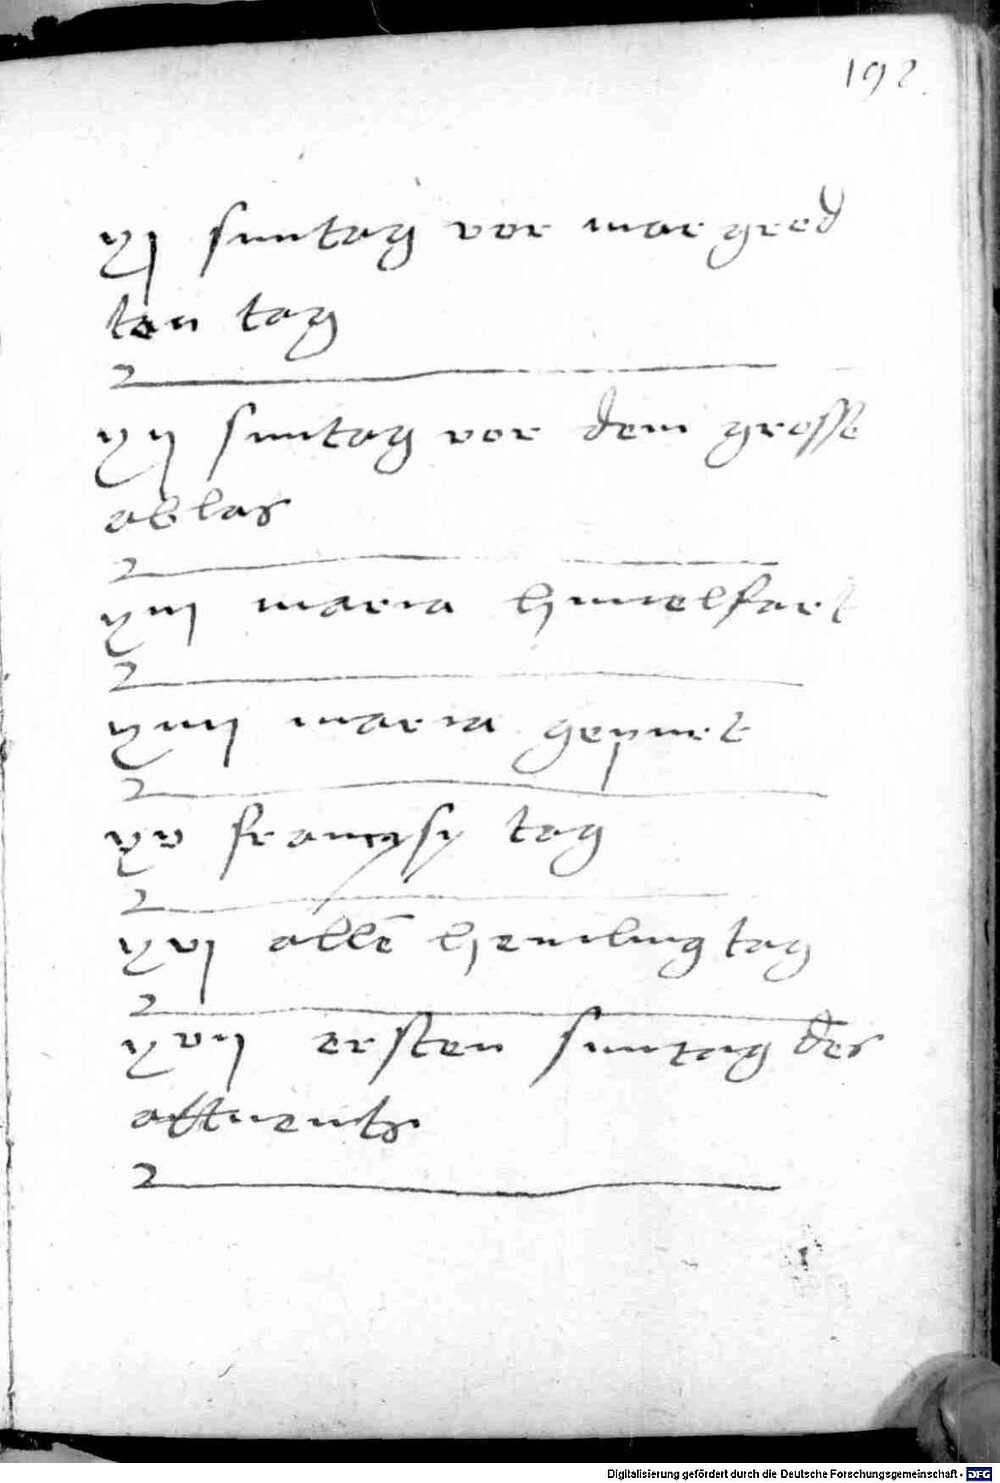 192.
xj suntag vor margred
ten tag
xij suntag vor dem grosse
ablas
xiij maria himelfart
xiiij maria gepurt
xv francysy tag
xvj allē heiiling tag
xvij ersten suntag des
attuents
Digitalisierung gefördert durch die Deutsche Forschungsgemeinschaft - DFG